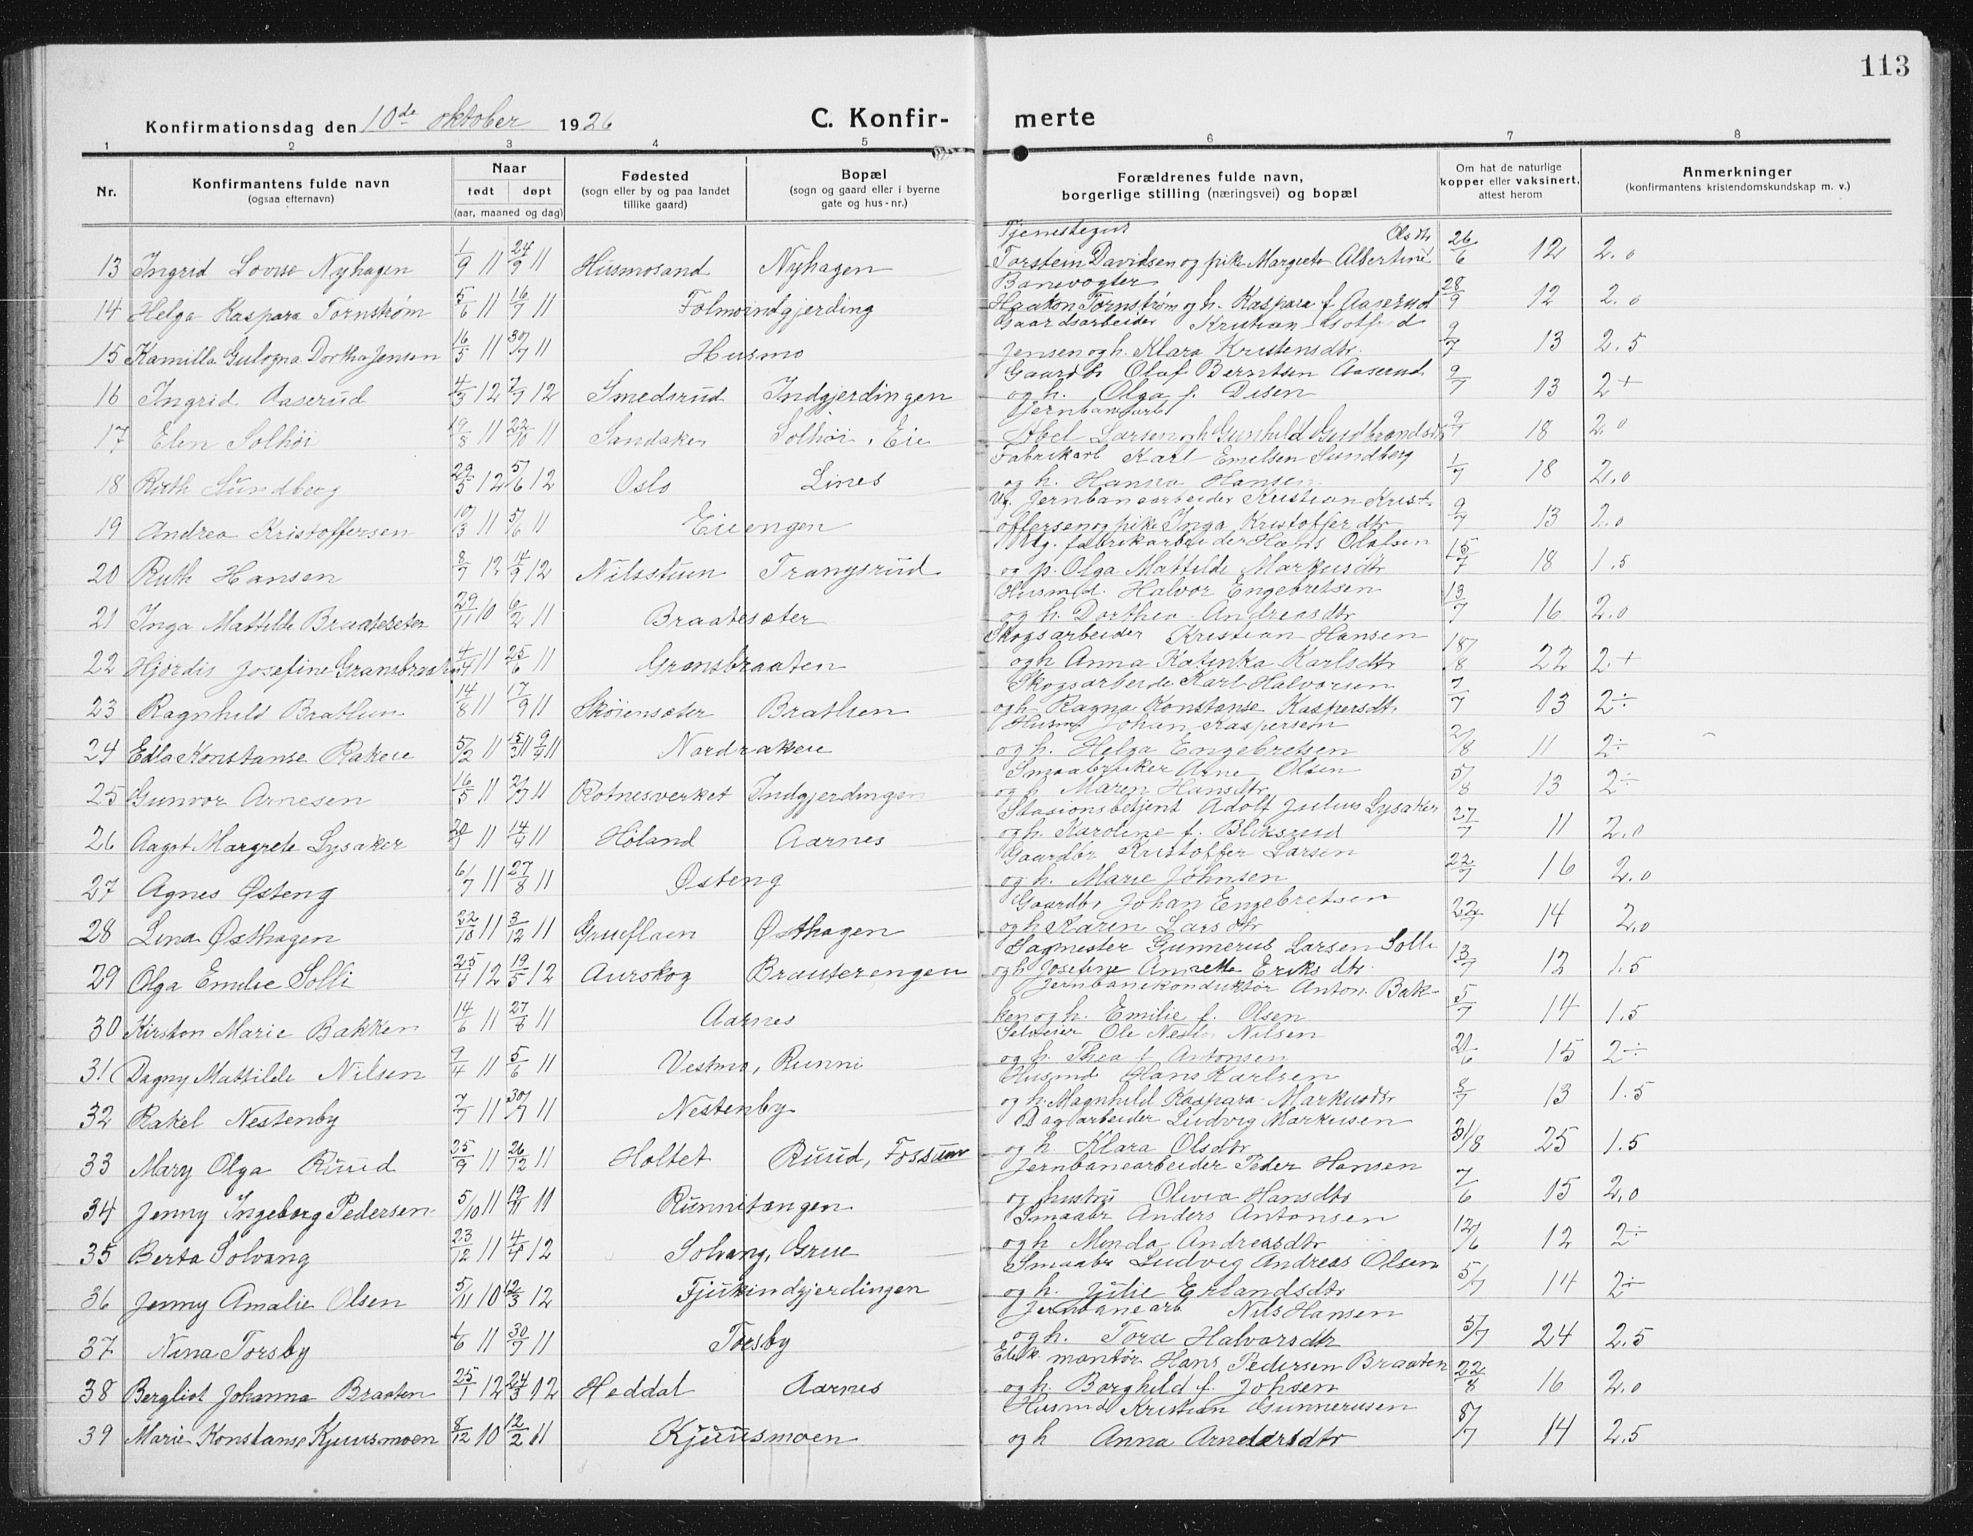 113
Konfirmationsdag den 10de oktober 1926 C. Konfirmerte
1 2 3 4 5 6 7 8
Nr. Konfirmantens fulde navn (ogsaa efternavn) Naar født døpt (aar, maaned og dag) Fødested (sogn eller by og paa landet tillike gaard) Bopæl (sogn og gaard eller i byerne gate og hus-nr.) Forældrenes fulde navn, borgerlige stilling (næringsvei) og bopæl Om hat de naturlige kopper eller vaksinert, attest herom Anmerkninger (konfirmantens kristendomskundskap m. v.)
Olsdtr
13 Ingrid Lovise Nyhagen 1/9 11 24/9 11 Husmosand Nyhagen Torstein Davidsen og pike Margrete Albertine 26/6 12 2.0
Banevogter
14 Helga Kaspara Tornstrøm 5/6 11 16/7 11 Folmoindgjerding Haakon Tornstrøm og h. Kaspara f. Aaserud 28/9 12 2.0
Gaardsarbeider Kristian
15 Kamilla Dorthea Jensen 16/5 11 30/7 11 Husmo Jensen og h. Klara Kristensdtr. 9/7 13 2.5
Gaardbr Olaf Berntsen Aaserud
16 Ingrid Aaserud 4/5 12 7/7 12 Smedsrud Indgjerdingen og h. Olga f. Disen 9/7 13 2+
Jernbanearb
17 Elen Solhöi 19/8 11 22/10 11 Sandaker Solhöi, Eie Abel Larsen og h Gunhild Guldbrandsdtr 9/7 18 2.0
Fabrikarb Karl Emelsen Sundberg
18 Ruth Sundberg 29/5 12 5/6 12 Oslo Lines og h. Hanna Hansen 1/7 18 2.0
Ug. Jernbanearbeider Kristian Krist-
19 Andrea Kristoffersen 10/3 11 5/6 11 Eieengen offersen og pike Inga Kristofferdtr 9/7 13 2.0
Ug. fabrikarbeider Hans Olalsen
20 Ruth Hansen 8/7 12 14/9 12 Nilsstuen Trangsrud og p. Olga Mathilde Markusdtr 15/7 18 1.5
Husmd. Halvor Engebretsen
21 Inga Mattilde Braatesæter 29/11 10 6/2 11 Braatesæter og h. Dorthea Andreasdtr 13/7 16 2.0
Skogsarbeider Kristian Hansen
22 Hjørdis Josefine Gransbraaten 4/4 11 25/6 11 Gransbraaten og h Anna Katinka Karlsdtr 18/8 22 2+
Skogsarbeide Karl Halvorsen
23 Ragnhild Brathen 14/8 11 17/9 11 Skøiensæter Brathen og h. Ragna Konstanse Kaspersdtr 7/7 13 2÷
Husmd Johan Kaspersen
24 Edla Konstanse Rakeie 5/2 11 15/3 11 9/4 11 Nordrakeie og h. Helga Engebretsen 2/8 11 2÷
Smaabruker Arne Olsen
25 Gunvor Arnesen 16/5 11 2/7 11 Rotnesverket Indgjerdingen og h Maren Hansdtr 5/8 13 2÷
Stasionsbetjent Adolf Julius Lysaker
26 Aagot Margrete Lysaker 11 14/4 11 Høland Aarnes og h. Karoline f. Bliksrud 27/7 11 2.0
Gaardbr Kristoffer Larsen
27 Agnes Østeng 6/7 11 27/8 11 Østeng og h. Marie Johnsen 22/7 16 2.0
Gaardbr Johan Engebretsen
28 Lina Østhagen 22/10 11 3/12 11 Grueflaen Østhagen og h Karen Larsdtr 22/7 14 2.0
Sagmester Gunnerius Larsen Solli
29 Olga Emilie Solli 25/4 12 19/5 12 Aurskog Brauterengen og h Josefine Annette Eriksdtr. 13/7 12 1.5
Jernbanekonduktør Anton Bak-
30 Kirsten Marie Bakken 14/6 11 27/8 11 Aarnes ken og h. Emilie f. Olsen 5/7 14 1.5
Selveier Ole Nilsen
31 Dagny Mattilde Nilsen 9/4 11 5/6 11 Vestmo, Runni og h. Thea f Antonsen 21/6 15 2÷
Husmd Hans Karlsen
32 Rakel Nestenby 7/7 11 30/7 11 Nestenby og h. Magnhild Kaspara Markusdtr 8/7 13 1.5
Dagarbeider Ludvig Markusen
33 Mary Olga Ruud 25/9 11 26/12 11 Holtet Ruud, Fossum og h. Klara Olsdtr 31/8 25 1.5
Jernbanearbeider Peder Hansen
34 Jenny Ingeborg Pedersen 5/10 11 19/11 11 Runnitangen og hustru Olivia Hansdtr 7/6 15 2.0
Smaabr Anders Antonsen
35 Berta Solvang 23/12 11 4/4 12 Solvang, Grue og h Menda Andreasdtr 12/6 12 2÷
Smaabr Ludvig Andreas Olsen
36 Jenny Amalie Olsen 5/11 10 12/3 12 Fjukindgjerdingen og h. Julie Erlandsdtr 5/7 14 2÷
Jernbanearb Nils Hansen
37 Nina Torsby 1/6 11 30/7 11 Torsby og h. Tora Halvorsdtr 5/7 24 2.5
Elek. montør. Hans Pedersen Braaten
38 Bergliot Johanna Braaten 25/1 12 24/3 12 Heddal Aarnes og h. Borghild f. Johsen 22/8 16 2.0
Husmd Kristian Gunnerusen
39 Marie Konstanse Kjuusmoen 8/12 10 12/2 11 Kjuusmoen og h Anna Arnedersdtr 8/7 14 2.5